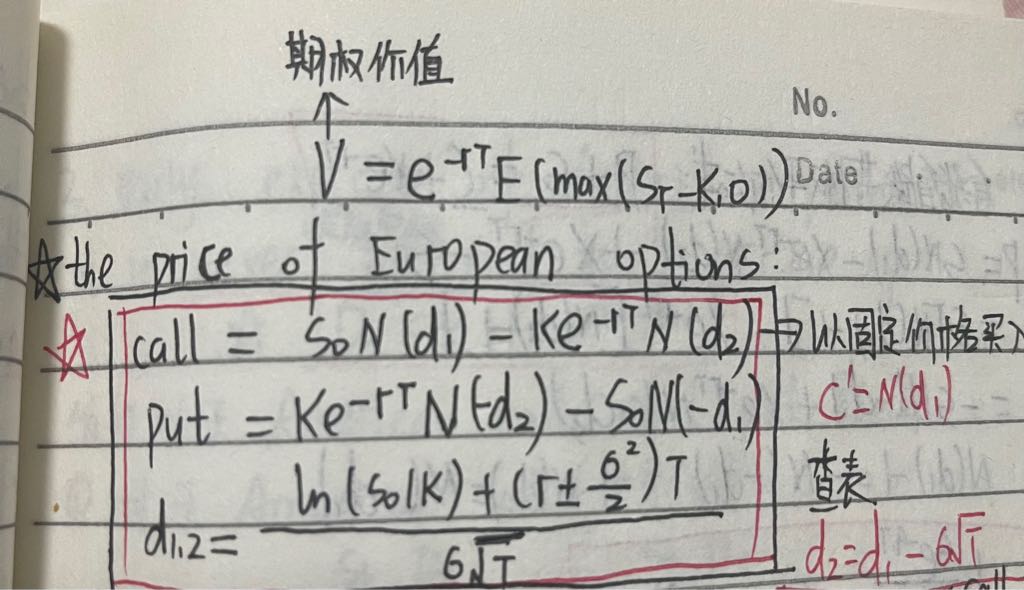 期权价值
↑
No.
V = e^{-rT} E(max(S_T-K,0))
Date
☆the price of European options:
☆ call = S₀N(d₁) - Ke^{-rT}N(d₂) → 以固定价格买入
C' = N(d₁)
put = Ke^{-rT}N(-d₂) - S₀N(-d₁)
查表
d₁,₂ = \frac{ln(S₀/K) + (r ± \frac{σ²}{2})T}{σ√T}
d₂ = d₁ - σ√T
call